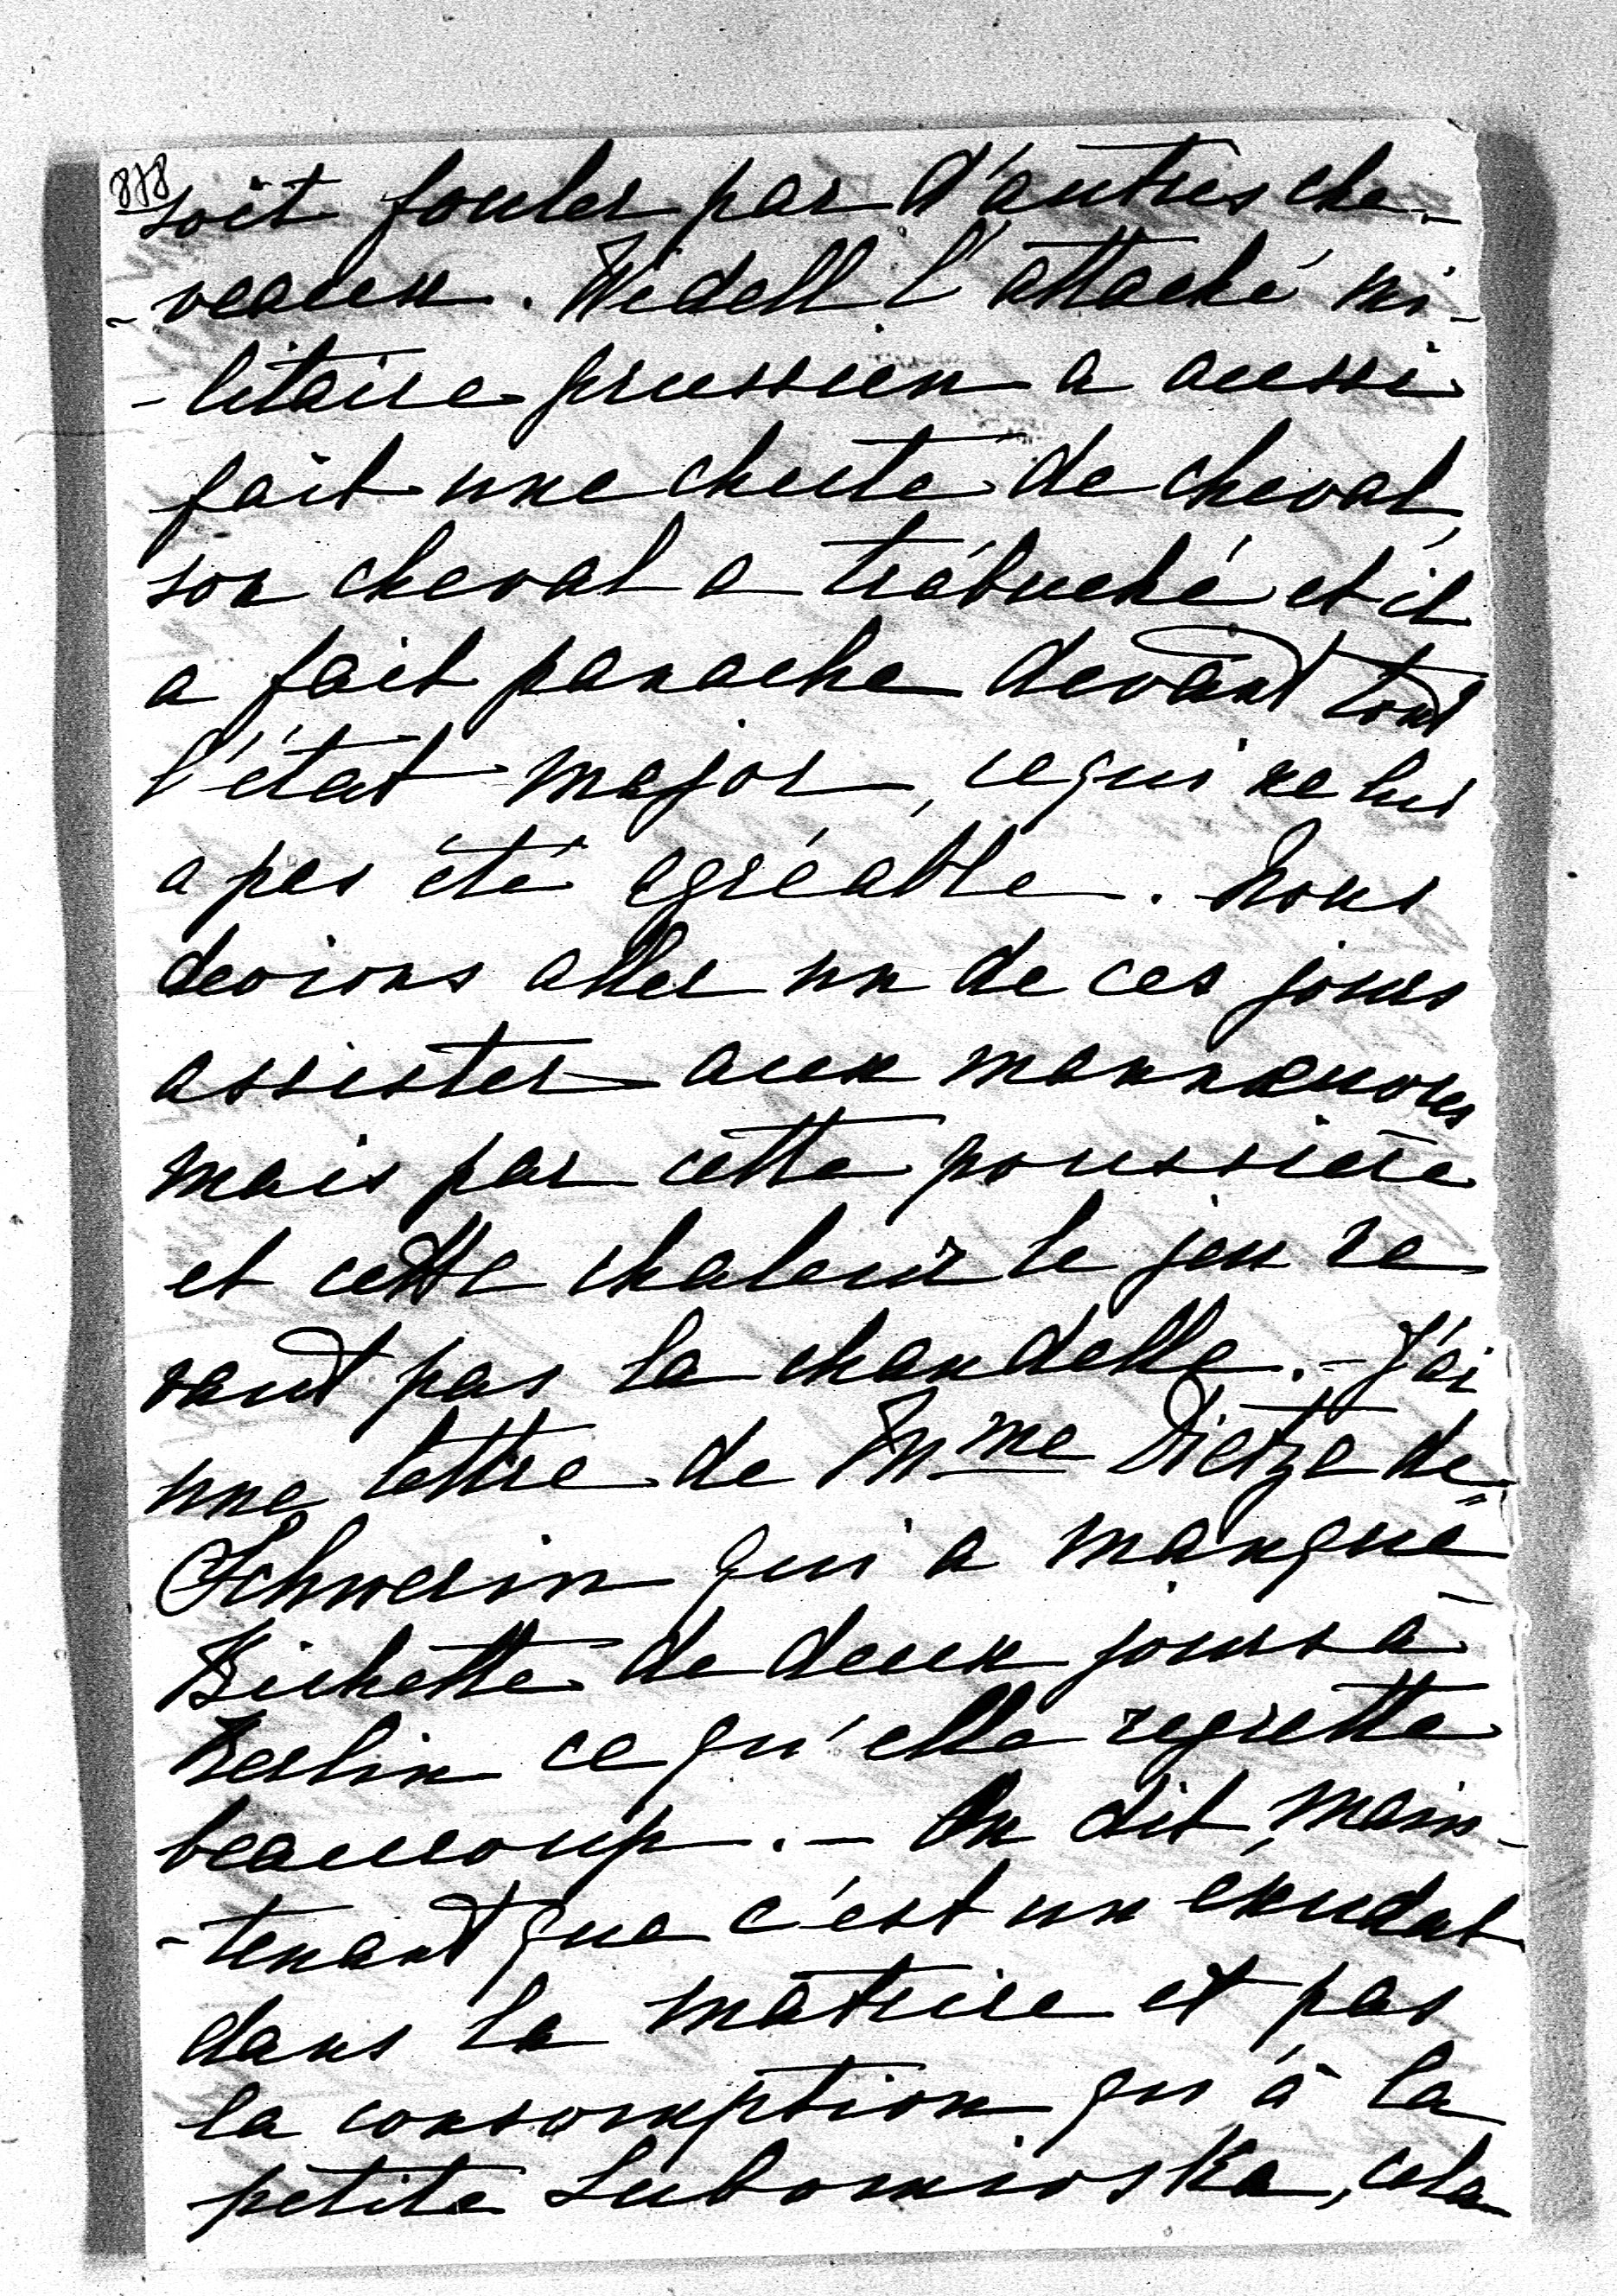 878
soit fouler par d'autres che-
-veaux. Wedell l'attaché mi-
-litaire prussien a aussi
fait une chute de cheval,
son cheval a trébuché et il
a fait panache devant tout
l'état major, ce qui ne lui
a pas été agréable. Nous
devions aller un de ces jours
assister aux mannœuvres
mais par cette poussière
et cette chaleur le jeu ne
vaut pas la chandelle. - J'ai
une lettre de Mme Dietze de
Schwerin qui a manqué
Bichette de deux jours à
Berlin ce qu'elle regrette
beaucoup. - On dit main-
-tenant que c'est un exudat
dans la matrice et pas
la consomption qu'a la
petite Lubomirska, cela